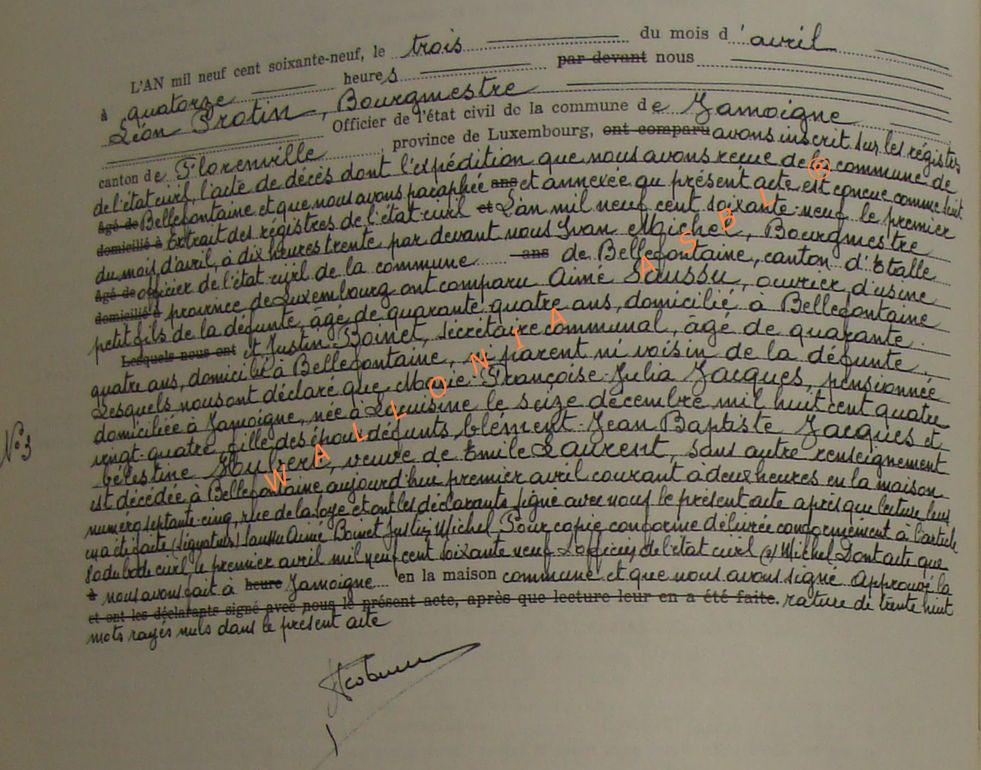 L'AN mil neuf cent soixante-neuf, le trois du mois d'avril
à quatorze heures par devant nous
Léon Protin, Bourgmestre
Officier de l'état civil de la commune de Jamoigne
canton de Florenville, province de Luxembourg, ont comparu avons inscrit sur les régistres
de l'état civil, l'acte de décès dont l'expédition que nous avons reçue de la commune de
âgé de Bellefontaine et que nous avons paraphée ans et annexée au présent acte est conçue comme suit
domicilié à Extrait des régistres de l'état civil et L'an mil neuf cent soixante-neuf le premier
du mois d'avril, à dix heures trente par devant nous Yvan Michel, Bourgmestre
âgé de officier de l'état civil de la commune ans de Bellefontaine, canton d'Etalle
domicilié à province de Luxembourg ont comparu Aimé Saussu, ouvrier d'usine
petit fils de la défunte, âgé de quarante quatre ans, domicilié à Bellefontaine
Lesquels nous ont et Justin Boinet, secrétaire communal, âgé de quarante
quatre ans, domicilié à Bellefontaine, ni parent ni voisin de la défunte.
Lesquels nous ont déclaré que Marie-Françoise-Julia Jacques, pensionnée
domiciliée à Jamoigne, née à Lacuisine le seize décembre mil huit cent quatre
N° 3
vingt-quatre, fille des époux défunts Clément-Jean Baptiste Jacques et
Célestine Houbera, veuve de Emile Laurent, sans autre renseignement
est décédée à Bellefontaine aujourd'hui premier avril courant à deux heures en la maison
numero septante-cinq, rue de la et ont les déclarants signé avec nous le présent acte après que lecture leur
en a été faite (signatures) Saussu Aimé Boinet Justin Michel Pour copie conforme délivrée conformément à l'article
du Code civil le premier avril mil neuf cent soixante neuf L'officier de l'état civil (s) Michel Dont acte que
à nous avons fait à heure Jamoigne en la maison commune et que nous avons signé Approuvé la
et ont les déclarants signé avec nous le présent acte, après que lecture leur en a été faite. rature de trente huit
mots rayés nuls dans le présent acte
WALLONIA ASBL @